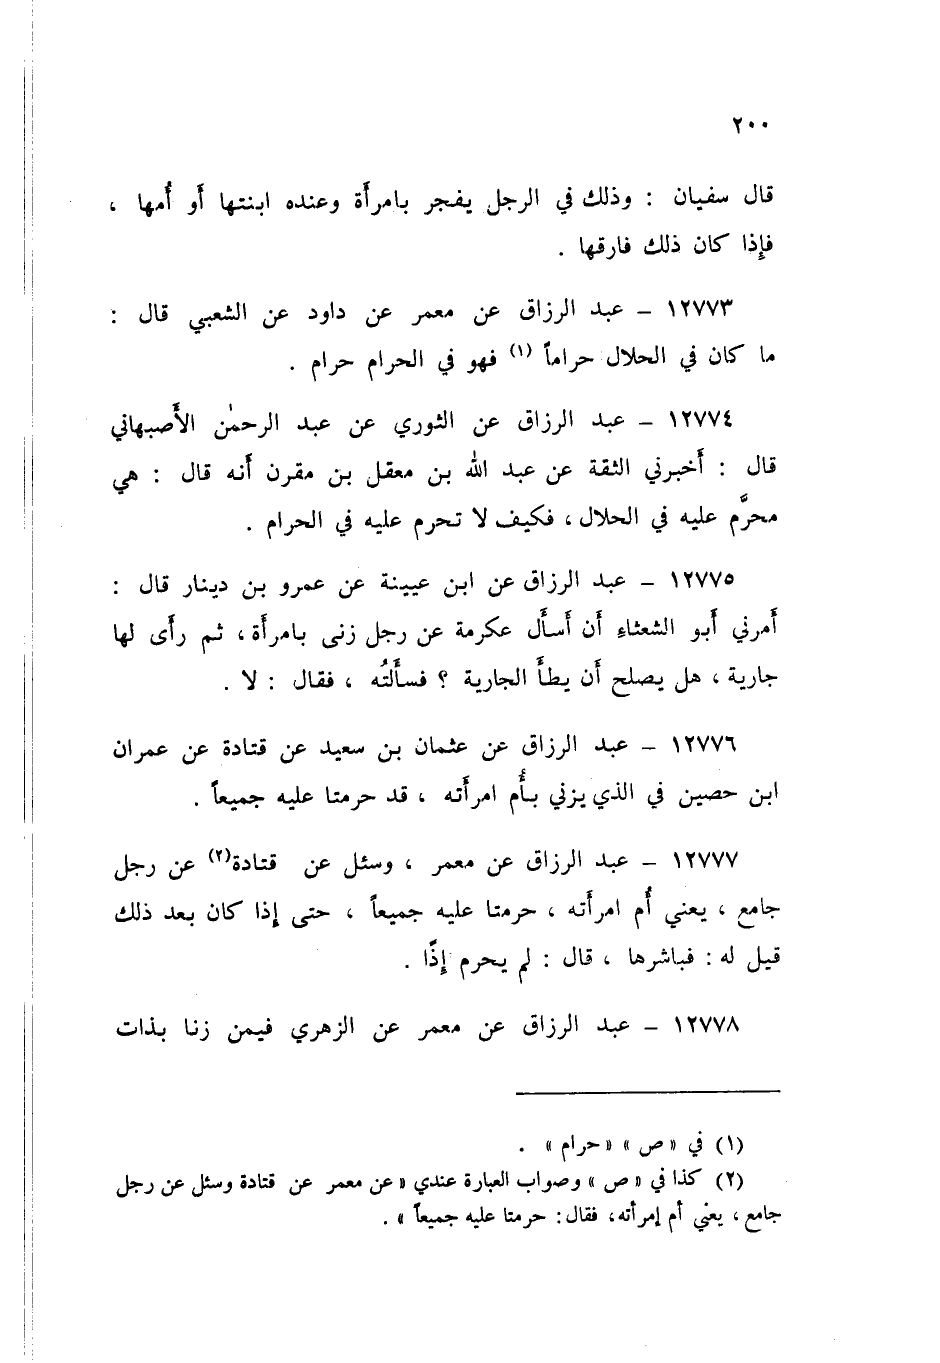 ٢٠٠
قال سفيان : وذلك في الرجل يفجر بامرأة وعنده ابنتها أو أُمها ،
فإذا كان ذلك فارقها .
١٢٧٧٣ – عبد الرزاق عن معمر عن داود عن الشعبي قال :
ما كان في الحلال حراماً (١) فهو في الحرام حرام .
١٢٧٧٤ – عبد الرزاق عن الثوري عن عبد الرحمٰن الأَصبهاني
قال : أَخبرني الثقة عن عبد الله بن معقل بن مقرن أَنه قال : هي
محرَّم عليه في الحلال ، فكيف لا تحرم عليه في الحرام .
١٢٧٧٥ – عبد الرزاق عن ابن عيينة عن عمرو بن دينار قال :
أَمرني أَبو الشعثاء أَن أَسأَل عكرمة عن رجل زنى بامرأَة ، ثم رأَى لها
جارية ، هل يصلح أَن يطأَ الجارية ؟ فسأَلتُه ، فقال : لا .
١٢٧٧٦ – عبد الرزاق عن عثمان بن سعيد عن قتادة عن عمران
ابن حصين في الذي يزني بأُم امرأَته ، قد حرمتا عليه جميعاً .
١٢٧٧٧ – عبد الرزاق عن معمر ، وسئل عن قتادة(٢) عن رجل
جامع ، يعني أُم امرأَته ، حرمتا عليه جميعاً ، حتى إذا كان بعد ذلك
قيل له : فباشرها ، قال : لم يحرم إِذًا .
١٢٧٧٨ – عبد الرزاق عن معمر عن الزهري فيمن زنا بذات
(١) في «ص» «حرام» .
(٢) كذا في «ص» وصواب العبارة عندي «عن معمر عن قتادة وسئل عن رجل
جامع ، يعني أم إمرأته، فقال: حرمتا عليه جميعاً » .